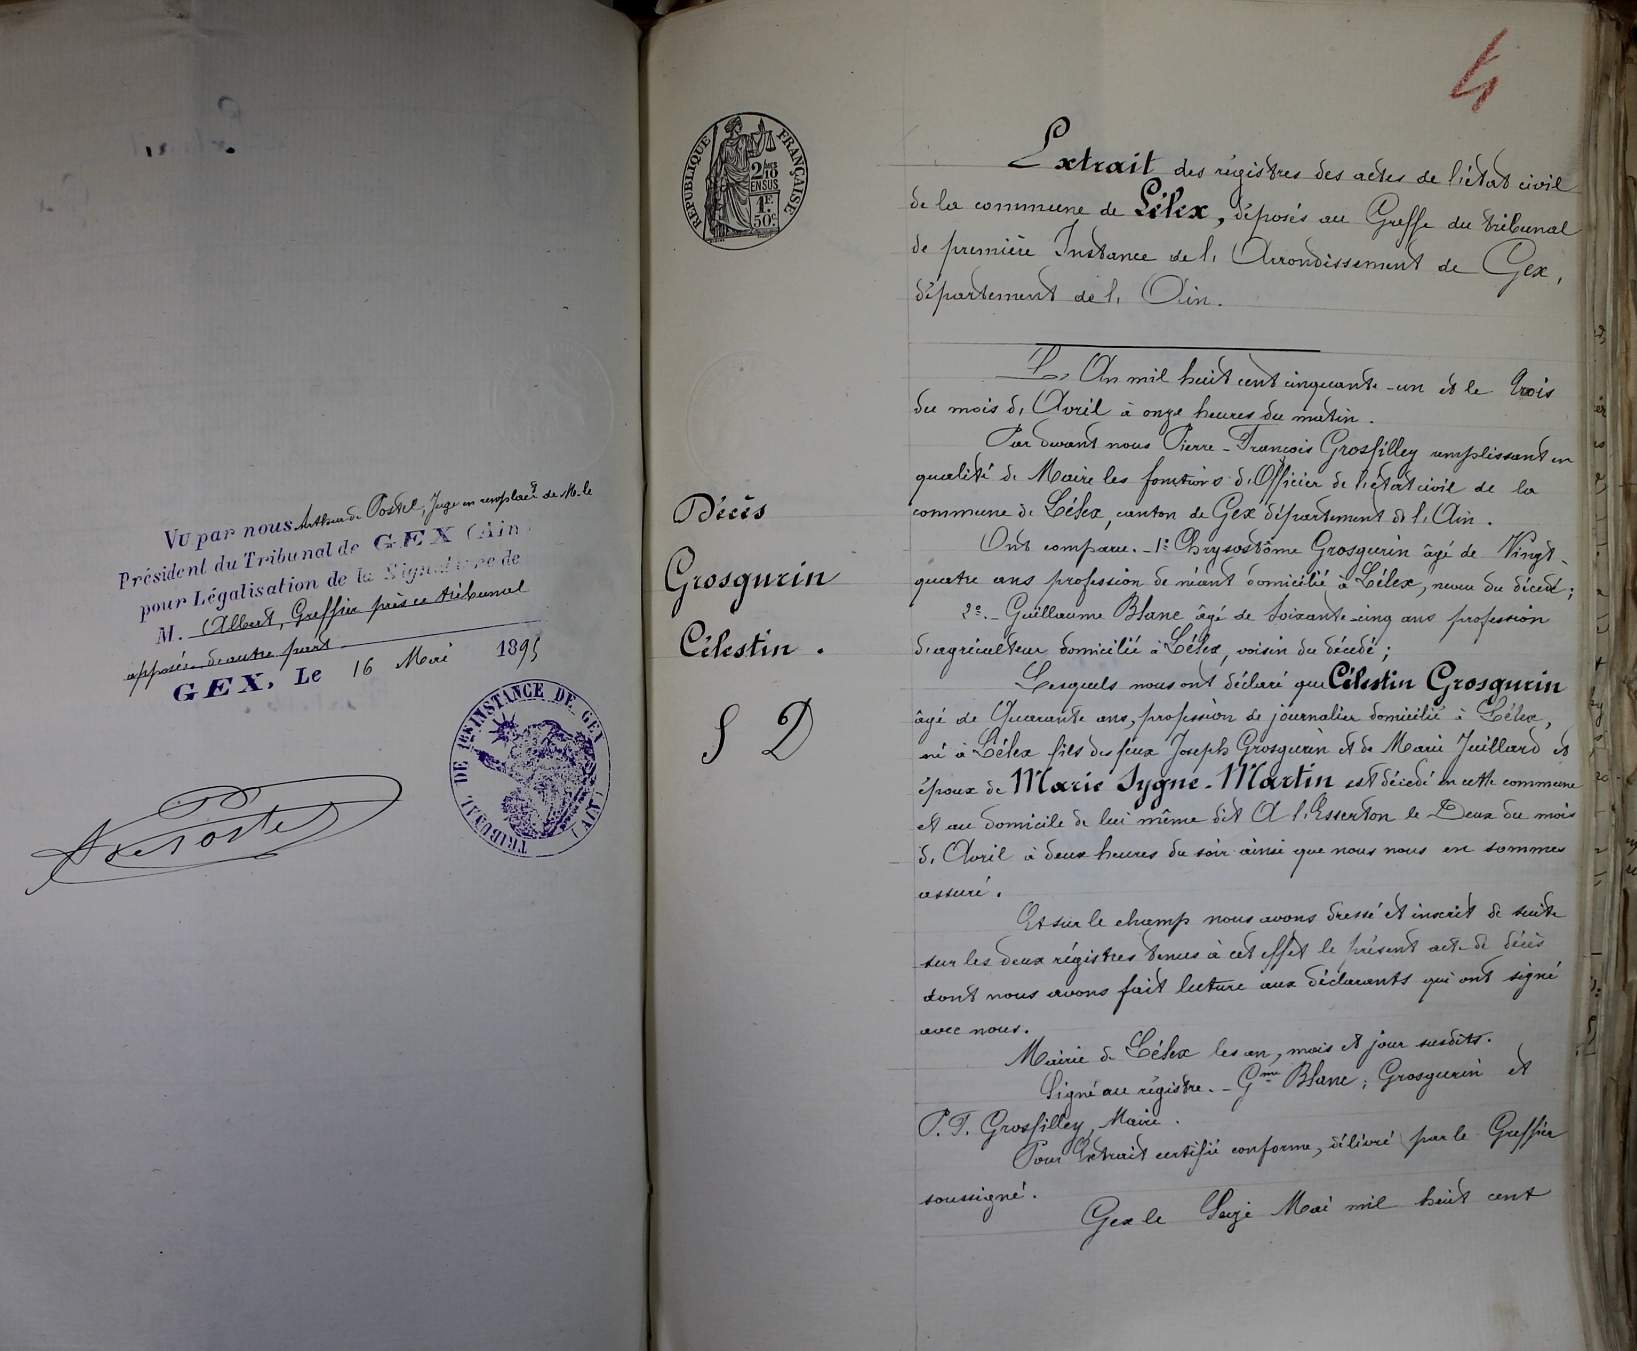 Vu par nous Arthur de Postel, Juge en remplact de M. le
Président du Tribunal de GEX (Ain
pour Légalisation de la Signature de
M. Albert, Greffier près ce tribunal
apposée d'autre part
GEX, Le 16 Mai 1895
TRIBUNAL DE 1ère INSTANCE DE GEX (AIN)
A de Postel
4
REPUBLIQUE FRANÇAISE
2 /10
EN SUS
1F.
50c.
Extrait des régistres des actes de l'état civil
de la commune de Lélex, déposés au Greffe du tribunal
de première Instance de l'Arrondissement de Gex,
département de l'Ain.
L'An mil huit cent cinquante-un et le trois
du mois d'Avril à onze heures du matin.
Par devant nous Pierre-François Grosfilley remplissant en
qualité de Maire les fonctions d'Officier de l'état civil de la
commune de Lélex, canton de Gex département de l'Ain.
Ont comparu.- 1º Chrysostôme Grosgurin âgé de Vingt-
quatre ans profession de néant domicilié à Lélex, neveu du décédé;
2º.- Guillaume Blanc âgé de Soixante-cinq ans profession
d'agriculteur domicilié à Lélex, voisin du décédé;
Lesquels nous ont déclaré que Célestin Grosgurin
âgé de Quarante ans, profession de journalier domicilié à Lélex,
né à Lélex fils des feux Joseph Grosgurin et de Marie Juillard et
époux de Marie Sygne-Martin est décédé en cette commune
et au domicile de lui même dit A l'Esserton le Deux du mois
d'Avril à deux heures du soir ainsi que nous nous en sommes
assuré.
Et sur le champ nous avons dressé et inscrit de suite
sur les deux régistres tenus à cet effet le présent acte de décès
dont nous avons fait lecture aux déclarants qui ont signé
avec nous.
Mairie de Lélex les an, mois et jour susdits.
Signé au régistre.- Gme Blanc; Grosgurin et
P. F. Grosfilley, Maire.
Pour Extrait certifié conforme, délivré par le Greffier
soussigné.
Gex le Seize Mai mil huit cent
Décès
Grosgurin
Célestin.
S D